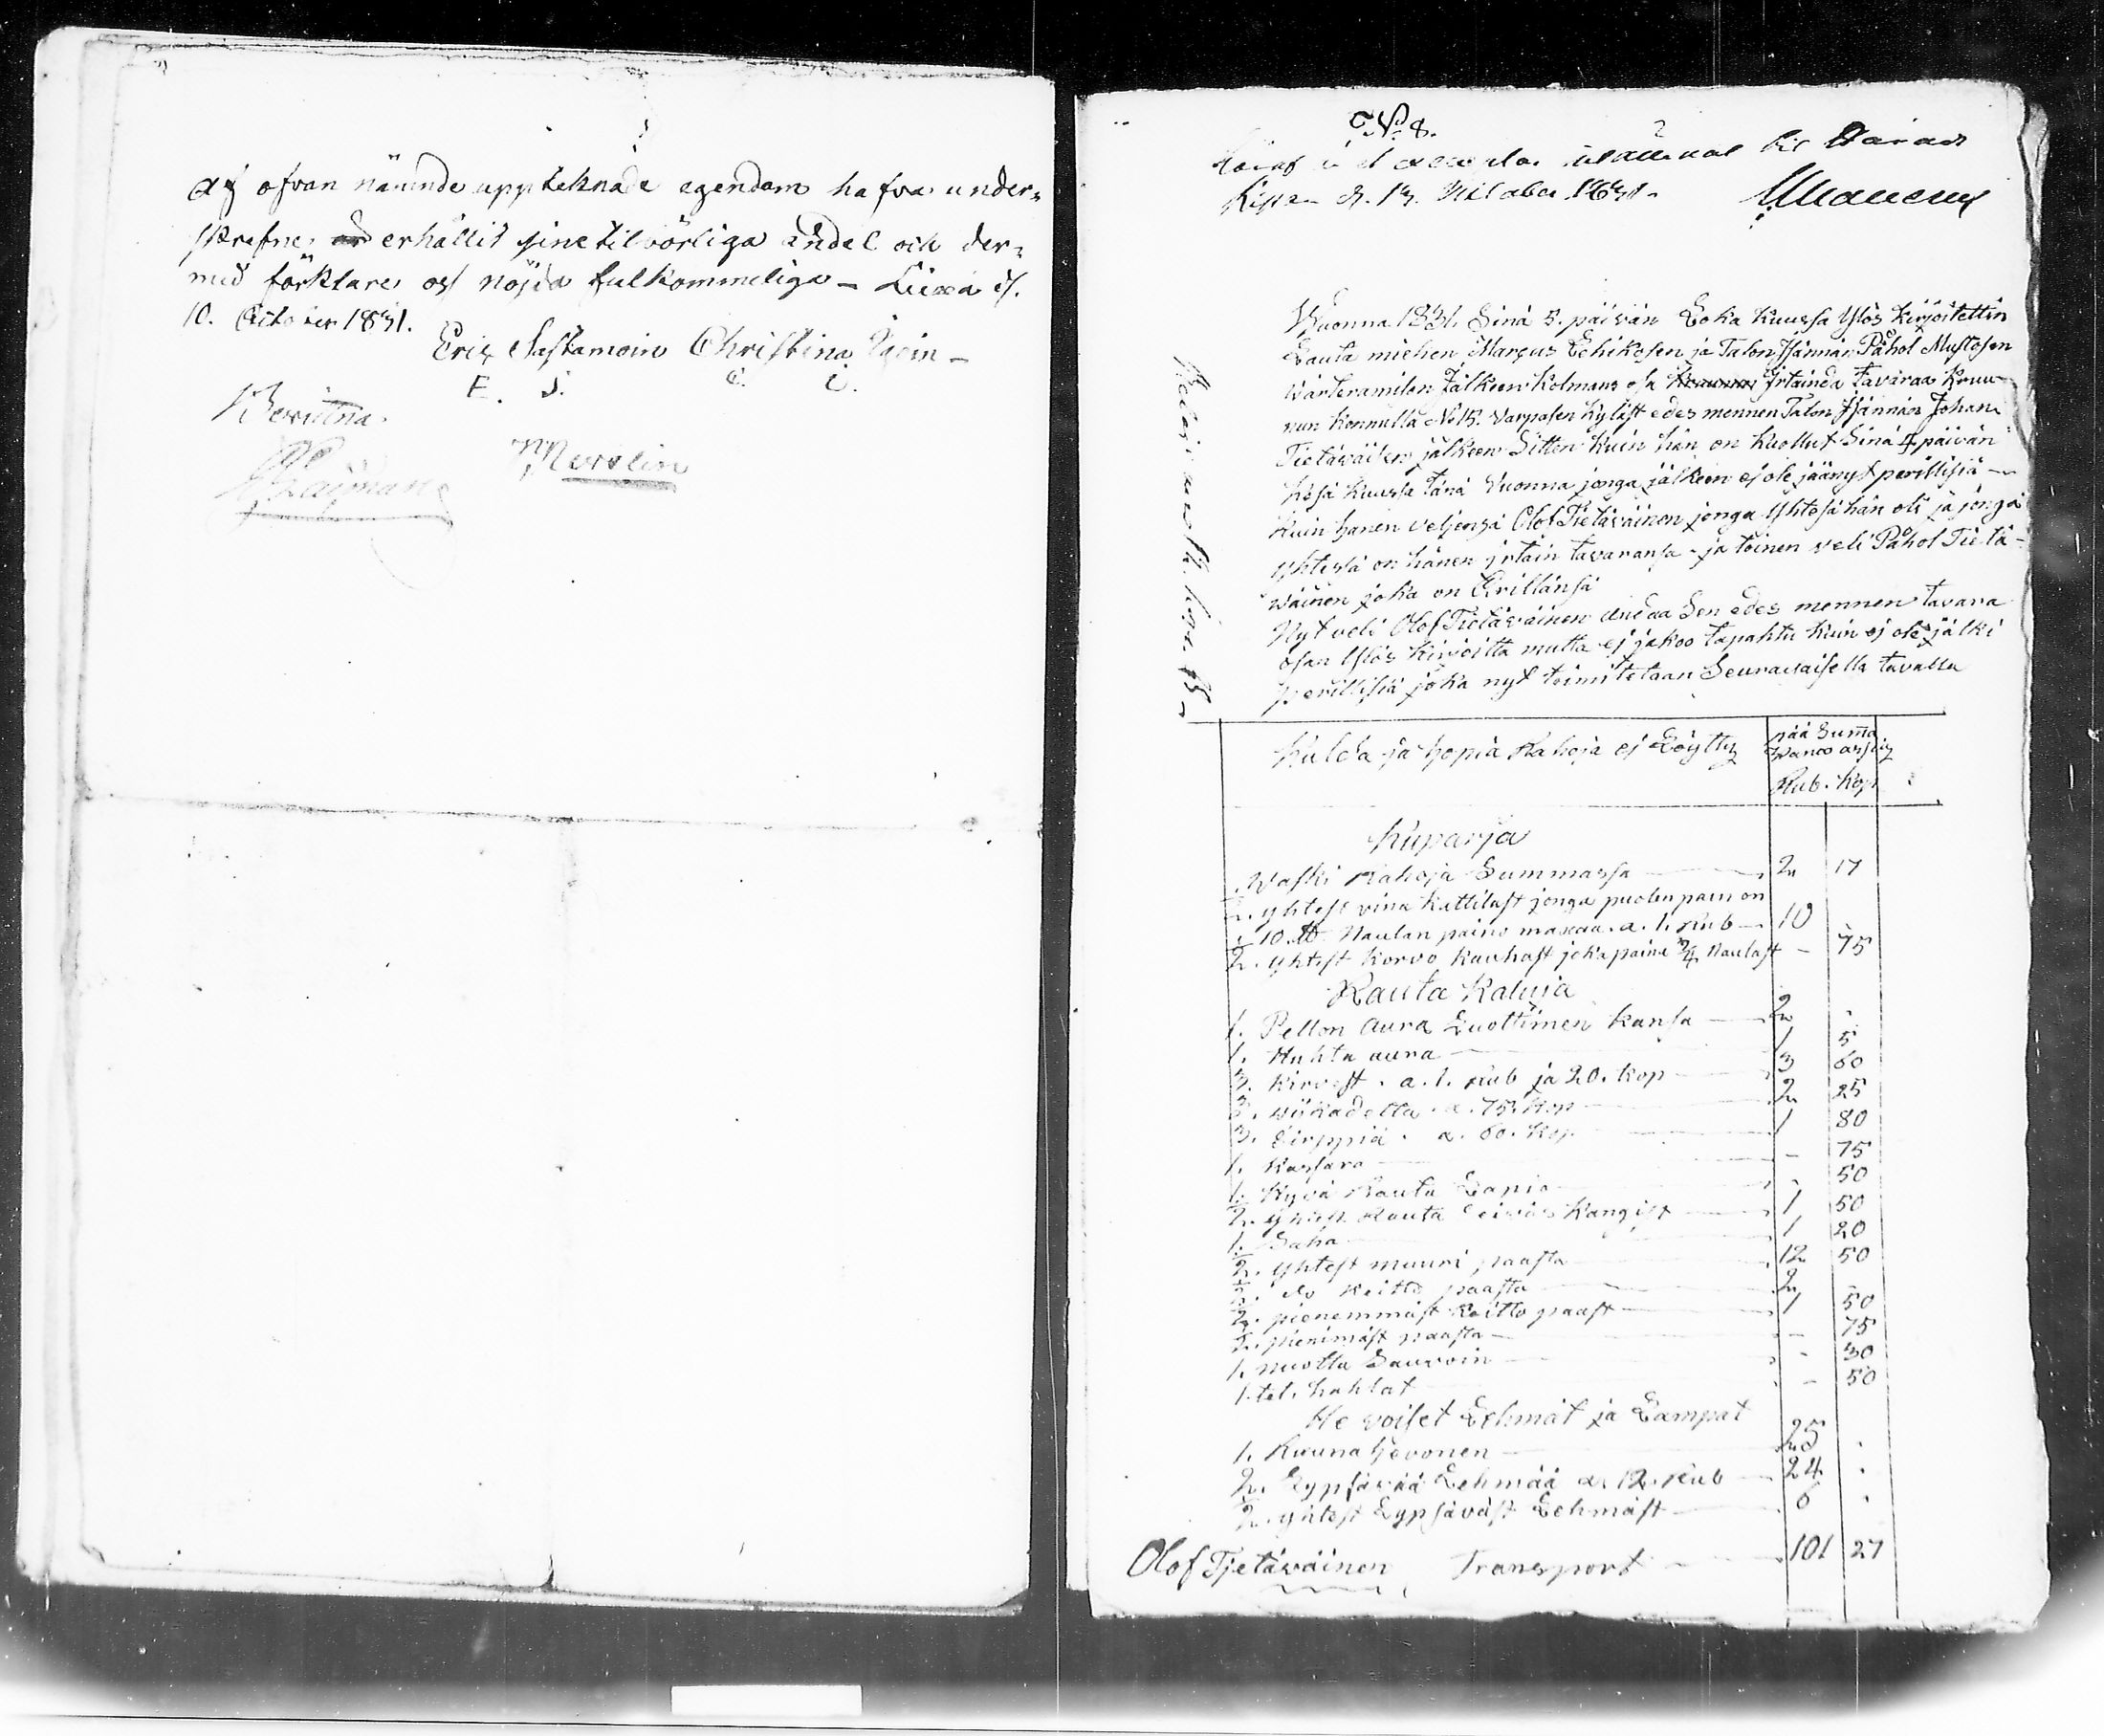 af ofvan nämnde upptecknade egendom hafva under=
skrefne erhållit sine tilbörliga andel och der=
med förklare oss nöjda fulkommeliga – Liixa d.
10. October 1831.
Eric Sastamoin Christina
E. S. C.
Bewitna.
N: 8.
d. 13. October 1831.
Vuonna 1831. Sinä 5. päivän Loka Kuussa Ylös Kirjoitettin
Lauta miehen Marcus Lehikosen ja Talon Isännän Påhol Mustosen
Wärteramisen Jälkeen Kolmans osa Irtainda Tavaraa Kruu-
nun Konnulla No 15. Varpasen Kyläst edes mennen Talon Isännän Johan
Tietäwäisen jälkeen Sitten Kuin hän on Kuollut Sinä 4 päivän
Kesä Kuussa Tänä Vuonna jonga jälkeen ej ole jäänyt perillisiä
Kuin hänen veljensä Olof Tietäväinen jonga Yhtesä hän oli ja jonga
Yhtessä on hänen jrtain tavaransa ja toinen veli Påhol Tietä-
wäinen joka on Erillänsä
Nyt veli Olof Tietäväinen andaa Sen edes mennen tavara
osan Ylös Kirjoitta mutta ej jakoo tapahtu Kuin ej ole jälki
perillisiä joka nyt toimitetaan Seurawaisella tavalla
Kulda ja hopia Rahoja ej Löytty pää Summa
Rub. Kop
Kuparja
Waski Rahoja Summassa 2 17
1/2. yhtest vina Kattilast jonga puolen pain on
10. ℔ Naulan paino maxaa. a. 1. Rub 10
1/2. yhtest Korvo Kauhast joka paina 3/4 Naulast – 75
Rauta Kaluja
1. Pellon aura Luottimen Kansa 2 .
1. Huhta aura 1 5
3. Kirvest. a. 1. Rub ja 20. Kop 3 60
3. wiikadetta. a. 75. Kop 2 25
3. Sirppiä. a. 60. Kop 1 80
1. Kassara – 75
1. Hyvä Rauta Lapio – 50
1/2. yhtest Rauta Kangist 1 50
1. Saha 1 20
1/2. yhtest muuri paasta 12 50
1/2. do Keitto paasta 2 –
1/2. pienemmäst Keitto paast 1 50
1/2. pienimäst paasta – 75
1. nuotta Sauvoin – 30
1. tel. huhlat – 50
He voiset Lehmät ja Lampat
1. Ruuna hevonen 25 .
2. Lypsävää Lehmää a. 12. Rub 24 .
1/2. yhtest Lypsäväst Lehmäst 6 .
Olof Tjetäwäinen Transport 101 27